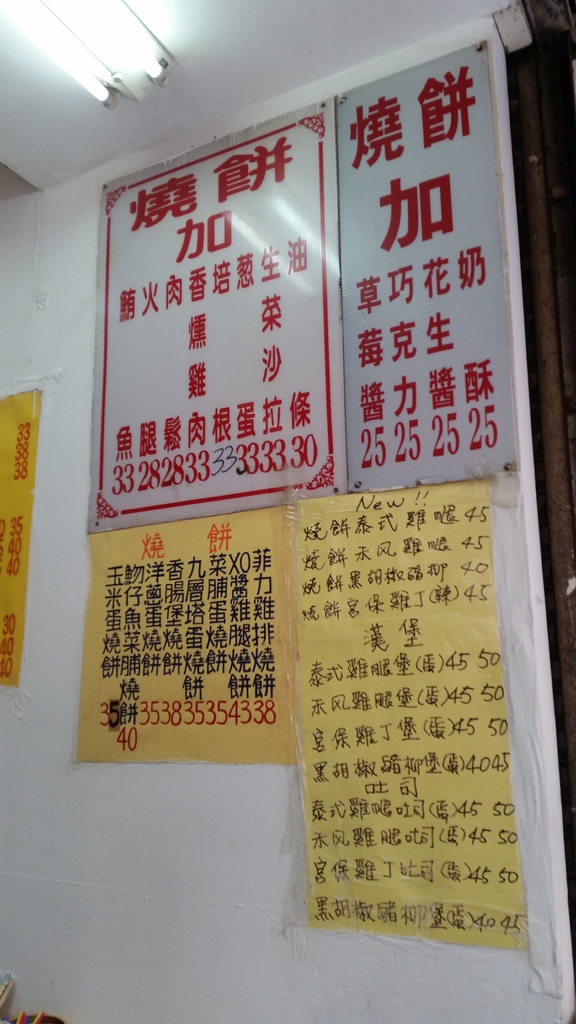 燒餅
加
鮪魚33
火腿28
肉鬆28
香燻雞肉33
培根33
葱蛋33
生菜沙拉33
油條30
燒餅
加
草莓醬25
巧克力25
花生醬25
奶酥25
燒餅
玉米蛋燒餅35
魩仔魚菜脯燒餅40
洋蔥蛋燒餅35
香腸堡燒餅38
九層塔蛋燒餅35
菜脯蛋燒餅35
XO醬雞腿燒餅43
菲力雞排燒餅38
New!!
燒餅泰式雞腿45
燒餅禾风雞腿45
燒餅黑胡椒豬柳40
燒餅宮保雞丁(辣)45
漢堡
泰式雞腿堡(蛋)45 50
禾风雞腿堡(蛋)45 50
宮保雞丁堡(蛋)45 50
黑胡椒豬柳堡(蛋)40 45
吐司
泰式雞腿吐司(蛋)45 50
禾风雞腿吐司(蛋)45 50
宮保雞丁吐司(蛋)45 50
黑胡椒豬柳堡(蛋)40 45